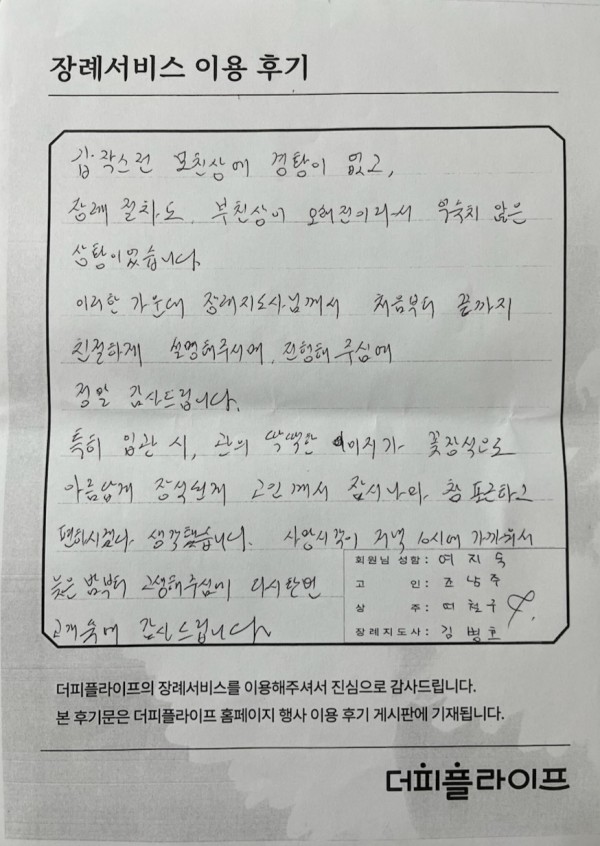 장례서비스 이용 후기
갑작스런 모친상에 경황이 없고,
장례 절차도, 부친상이 오래전이라서 익숙치 않은
상황이었습니다
이러한 가운데 장례지도사님께서 처음부터 끝까지
친절하게 설명해주시며, 진행해 주심에
정말 감사드립니다.
특히 입관 시, 관의 딱딱한 이미지가 꽃장식으로
아름답게 장식된게 고인께서 잠시나마 참 포근하고
편하시겠다 생각했습니다. 사망시각이 저녁 10시에 가까워서
늦은 밤부터 고생해주심에 다시한번
고개숙여 감사드립니다
회원님 성함: 여지숙
고 인: 조남주
상 주: 여철구
장례지도사: 김병호
더피플라이프의 장례서비스를 이용해주셔서 진심으로 감사드립니다.
본 후기문은 더피플라이프 홈페이지 행사 이용 후기 게시판에 기재됩니다.
더피플라이프